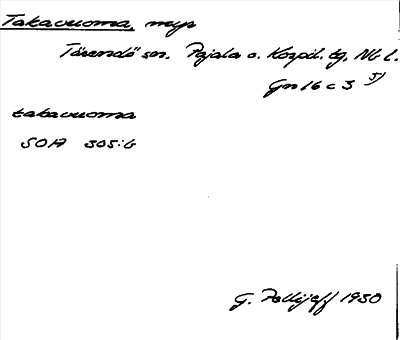 Takavuoma, myr
Tärendö sn. Pajala o. Korpil. tg. Nb l.
Gn 16 c 3 J)
takavuoma
SOA 305:6
G. Pellijeff 1950